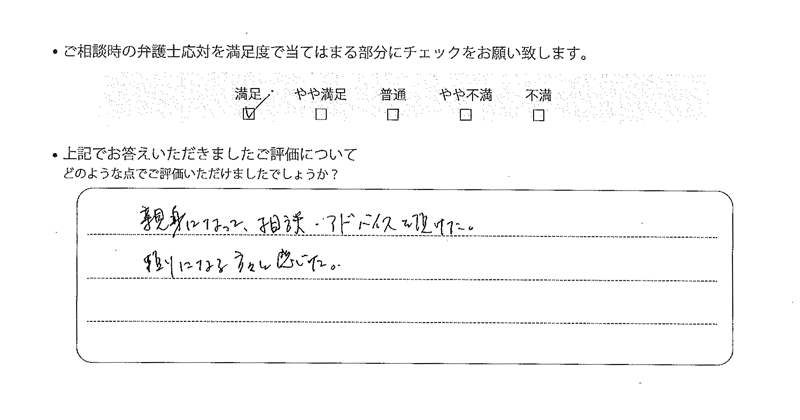 ・ご相談時の弁護士応対を満足度で当てはまる部分にチェックをお願い致します。
満足 やや満足 普通 やや不満 不満
・上記でお答えいただきましたご評価について
どのような点でご評価いただけましたでしょうか？
親身になって、相談・アドバイスを頂けた。
頼りになる方々と感じた。